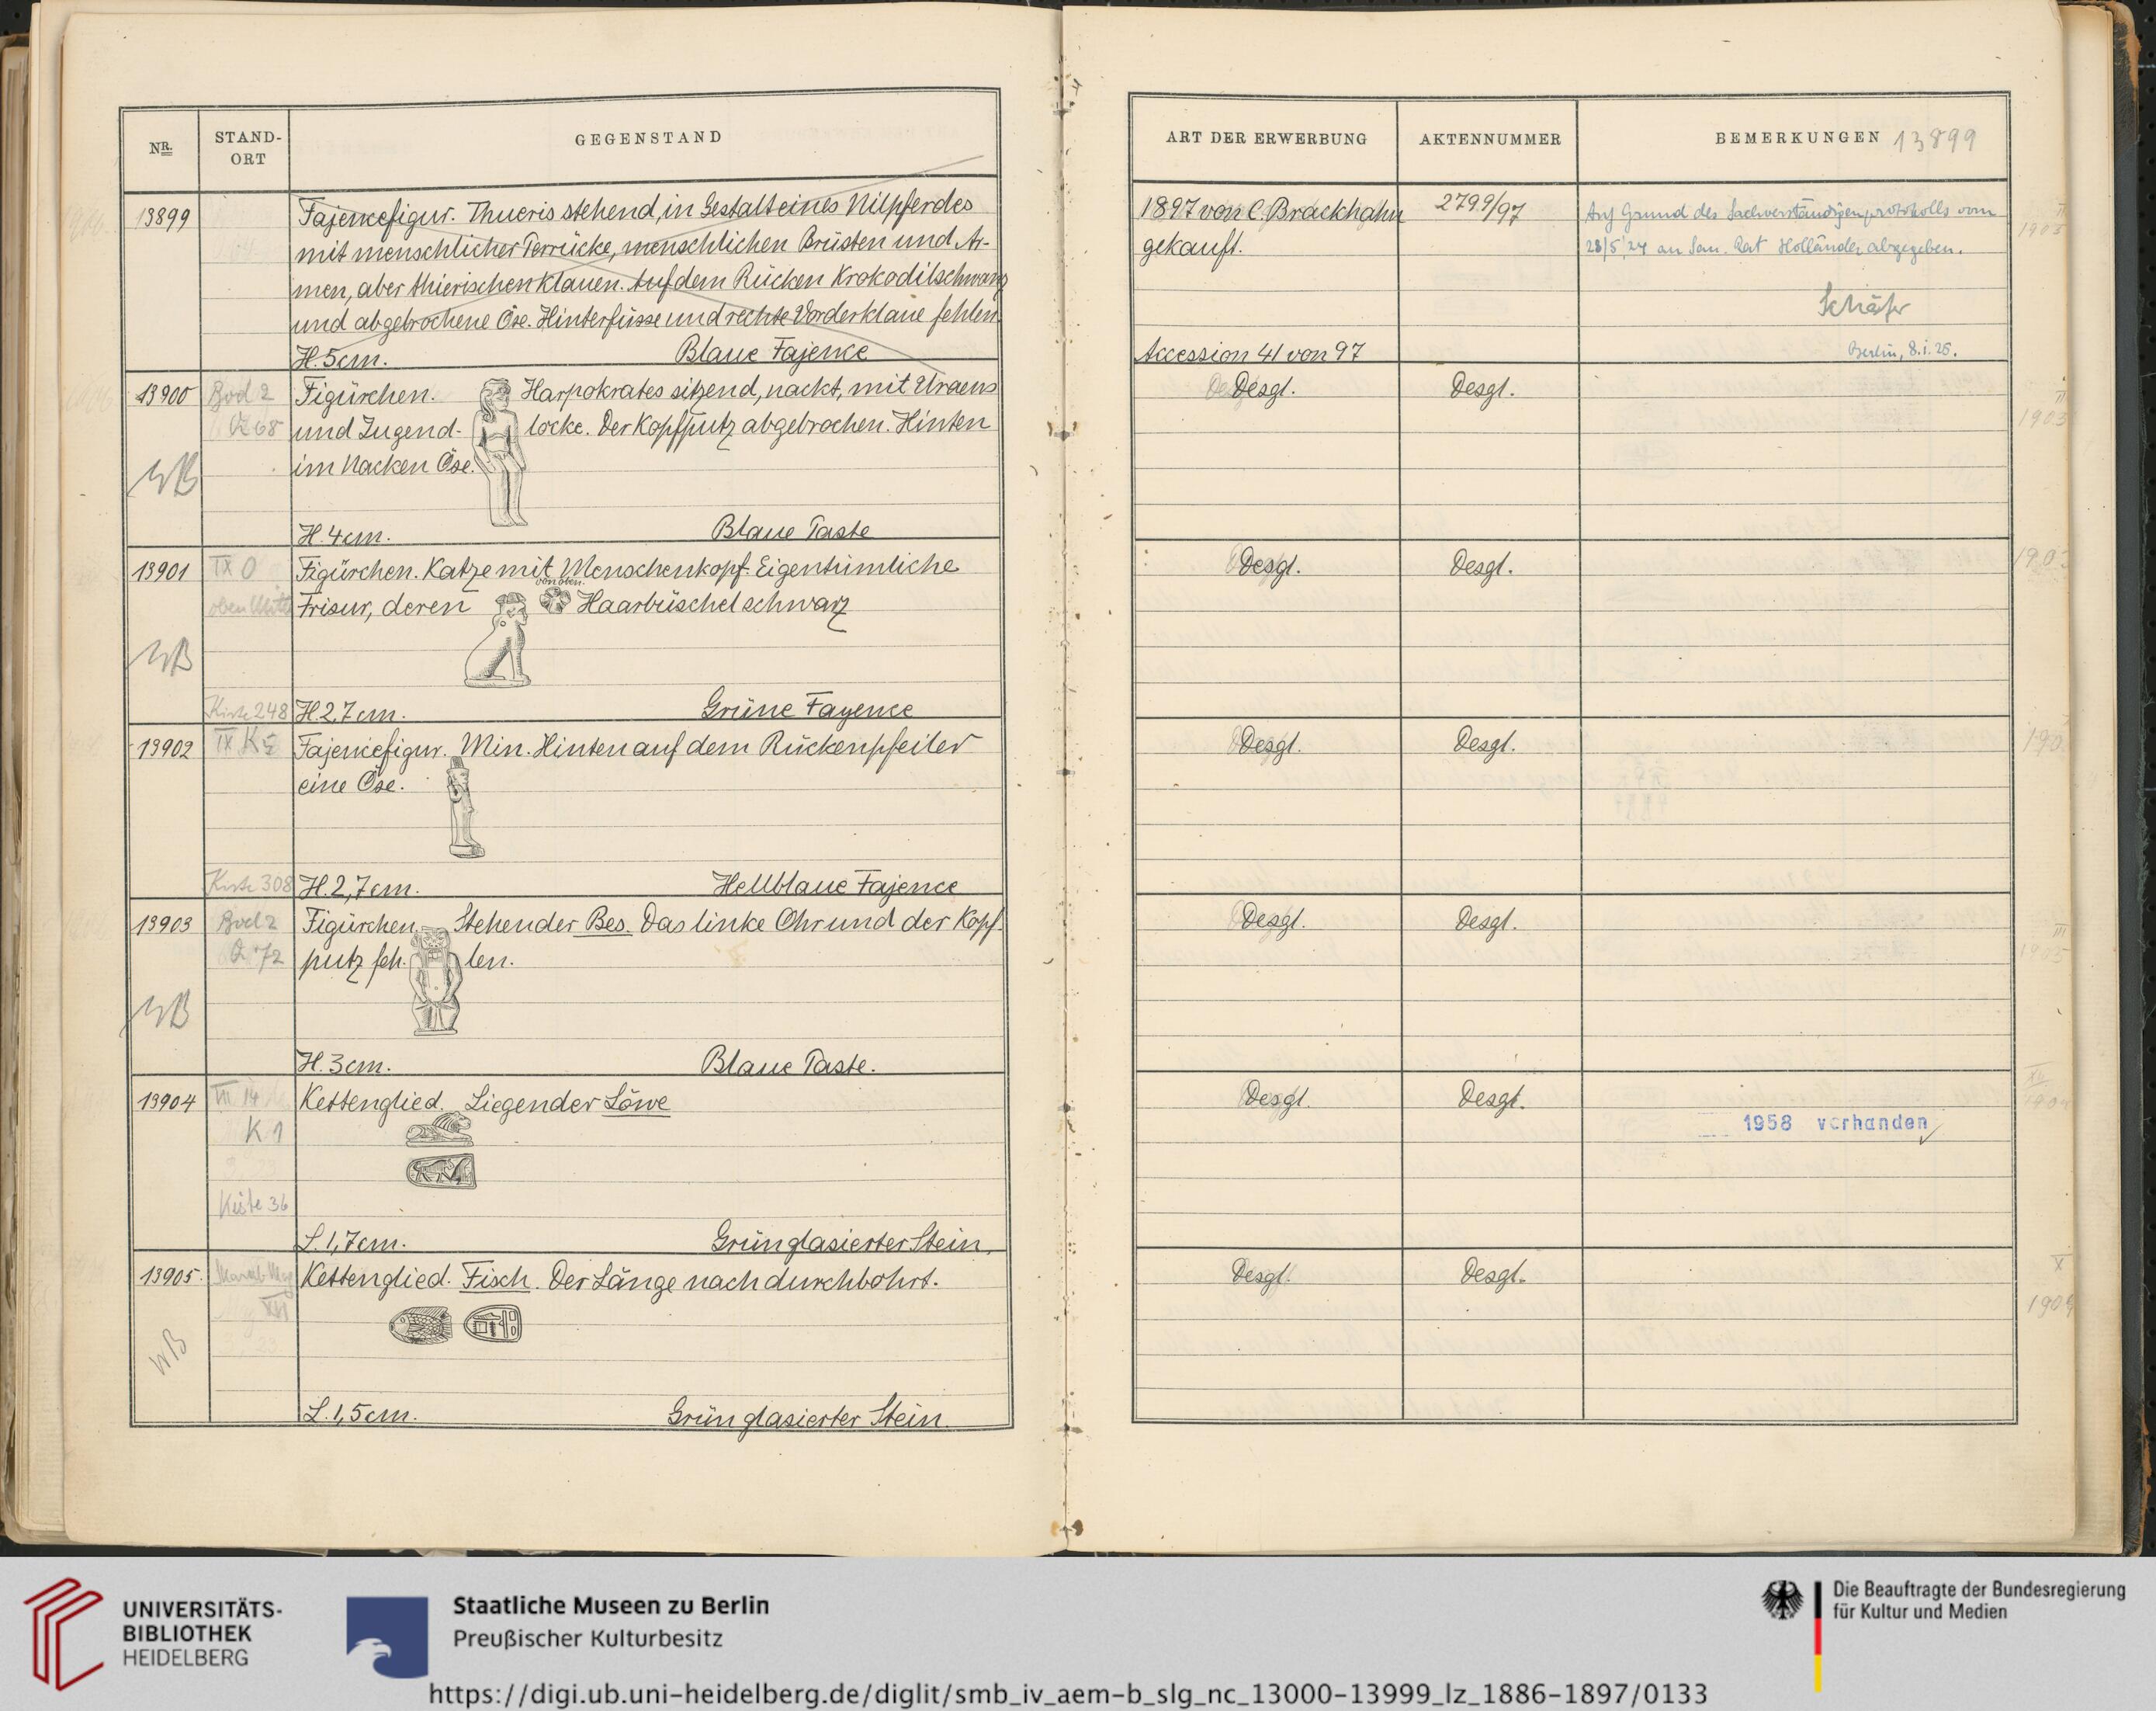 NR.
STAND-
ORT
GEGENSTAND
ART DER ERWERBUNG
AKTENNUMMER
BEMERKUNGEN 13899
13899
Fajencefigur. Thueris stehend, in Gestalt eines Nilpferdes
mit menschlicher Perrücke, menschlichen Brüsten und Ar-
men, aber thierischen Klauen. Auf dem Rücken Krokodilschwanz
und abgebrochene Öse. Hinterfüsse und rechte Vorderklaue fehlen
H. 5cm. Blaue Fajence
1897 von C. Brackhahn
gekauft.
Accession 41 von 97
2799/97
Auf Grund des Sachverständigenprotokolls vom
28/5 24 an San. Rat Holländer abgegeben.
Schäfer
Berlin, 8.i.25.
13900
Bod 2
Q 68
WB
Figürchen. Harpokrates sitzend, nackt, mit Uraeus
und Jugend- locke. Der Kopfputz abgebrochen. Hinten
im Nacken Öse.
H. 4cm. Blaue Paste
Desgl. Desgl.
13901
IX O
oben Mitte
WB
Kiste 248
Figürchen. Katze mit Menschenkopf. Eigentümliche
von oben.
Frisur, deren Haarbüschel schwarz
H. 2,7cm. Grüne Fayence
Desgl. Desgl.
13902
IX K5
Kiste 308
Fajencefigur. Min. Hinten auf dem Rückenpfeiler
eine Öse.
H. 2,7cm. Hellblaue Fajence
Desgl. Desgl.
13903
Bod 2
Q 72
WB
Figürchen. Stehender Bes. Das linke Ohr und der Kopf-
putz feh- len.
H. 3cm. Blaue Paste.
Desgl. Desgl.
13904
VII 14
K 1
Kiste 36
Kettenglied. Liegender Löwe
L. 1,7cm. Grün glasierter Stein.
Desgl. Desgl.
1958 vorhanden
13905.
XII
WB
Kettenglied. Fisch. Der Länge nach durchbohrt.
L. 1,5cm. Grün glasierter Stein.
Desgl. Desgl.
UNIVERSITÄTS-
BIBLIOTHEK
HEIDELBERG
Staatliche Museen zu Berlin
Preußischer Kulturbesitz
Die Beauftragte der Bundesregierung
für Kultur und Medien
https://digi.ub.uni-heidelberg.de/diglit/smb_iv_aem-b_slg_nc_13000-13999_lz_1886-1897/0133